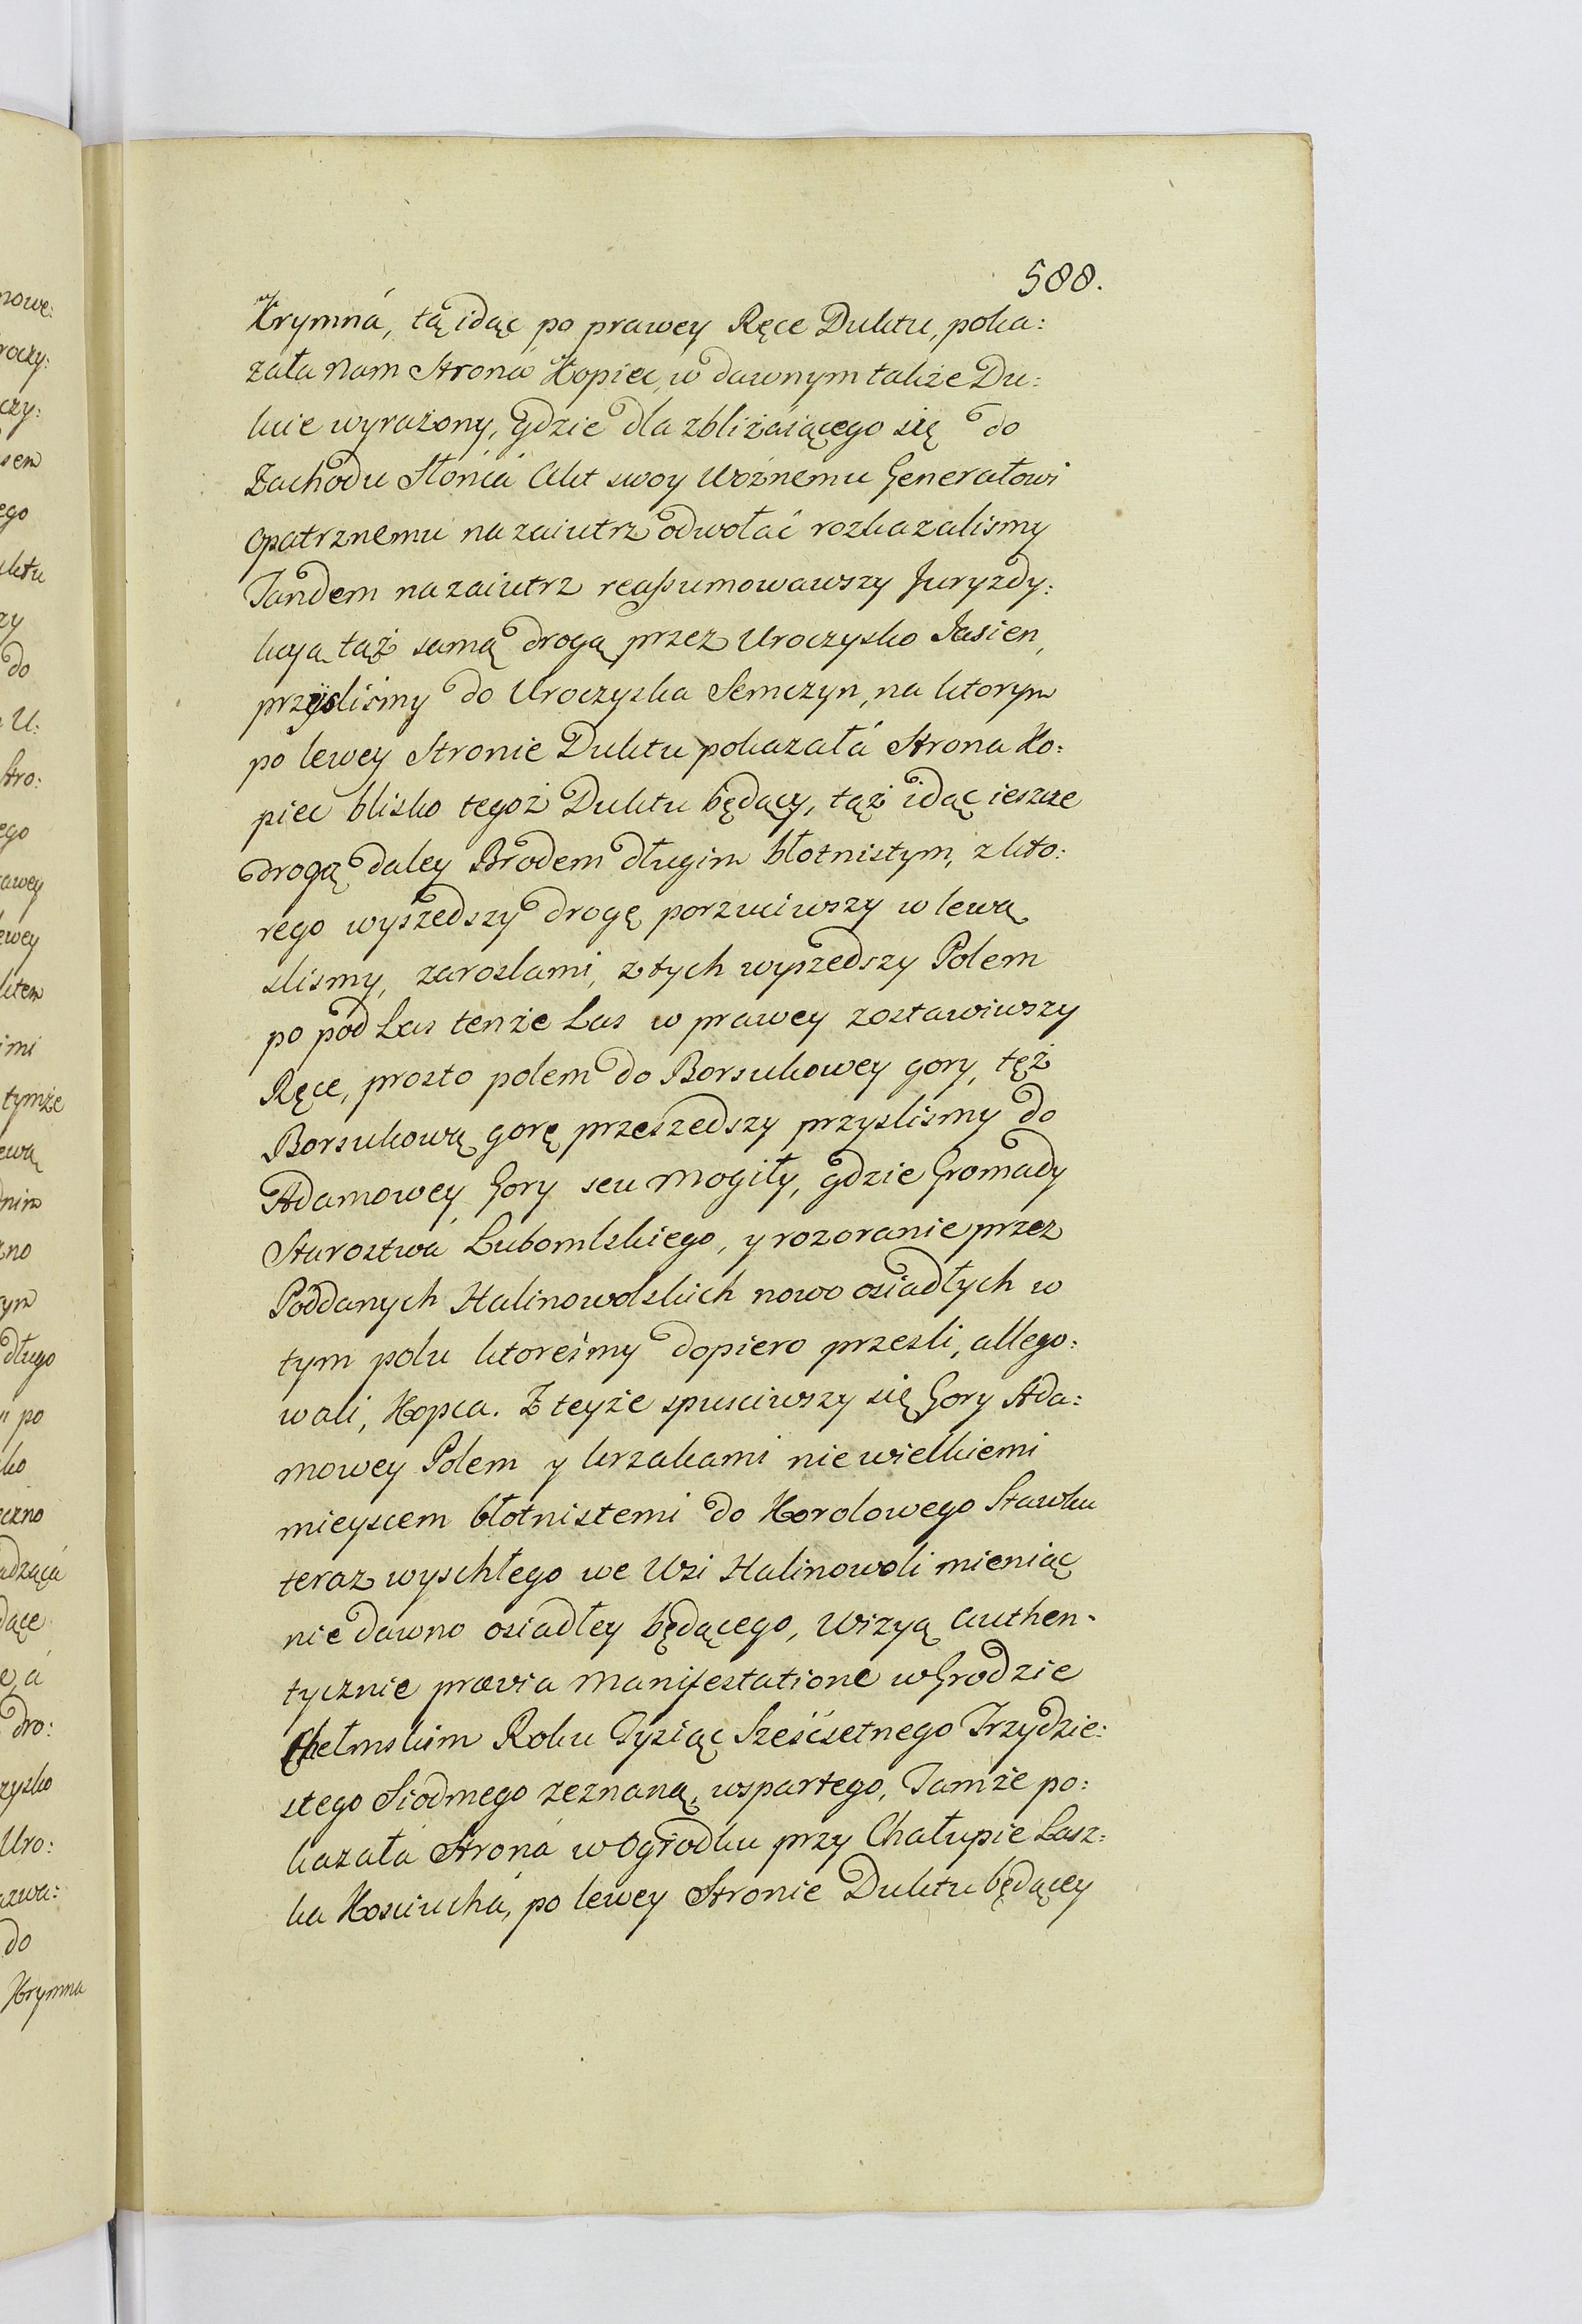 588.
Krymná, tą idąc po prawey Ręce Duktu, poka:
zała nam Stroná Kopiec, w dawnym także Du:
kcie wyrażony, gdzie dla zbliżaiącego się do
Zachodu Słońcá Akt swoy Woznemu Generałowi
opatrznemu nazaiutrz odwołać rozkazalismy
Tandem nazaiutrz reassumowawszy Juryzdy:
kcyą tąż samą drogą przez Uroczysko Jasien,
przysliśmy do Uroczyska Semczyn, na ktorym
po lewey Stronie Duktu pokazałá Strona Ko:
piec blisko tegoż Duktu będący, tąż idąc ieszcze
drogą daley Brodem długim błotnistym, z kto:
rego wyszedszy drogę porzuciwszy w lewą
slismy, zaroslami, z tych wyszedszy Polem
po pod Las tenże Las w prawey zostawiwszy
Ręce, prosto polem do Borsukowey gory, tęż
Borsukową gorę przeszedszy przyslismy do
Adamowey Gory seu Mogiły, gdzie Gromady
Starostwá Lubomlskiego, y rozoranie przez
Poddanych Kalinowolskich nowo osiadłych w
tym polu ktoreśmy dopiero przesli, allego:
wali, Kopca. Z teyże spusciwszy się Gory Ada:
mowey Polem y krzakami nie wielkiemi
mieyscem błotnistemi do Korolowego Stawku
teraz wyschłego we Wsi Kalinowoli mieniąc
nie dawno osiadłey będącego, Wizyą Authen-
tycznie prævia Manifestatione w Grodzie
Chełmskim Roku Tysiąc Sześćsetnego Trzydzie:
stego Siodmego zeznaną, wspartego, Tamże po:
kazałá Stroná w Ogrodku przy Chałupie Lasz:
ka Kosciuchá, po lewey Stronie Duktu będącey